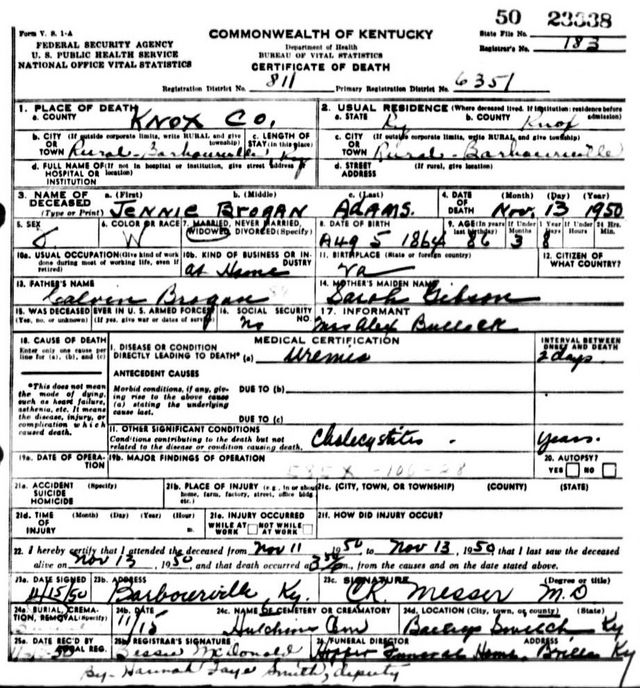 50 23338
Form V. S. 1-A
COMMONWEALTH OF KENTUCKY
State File No.
FEDERAL SECURITY AGENCY
U. S. PUBLIC HEALTH SERVICE
NATIONAL OFFICE VITAL STATISTICS
Department of Health
BUREAU OF VITAL STATISTICS
CERTIFICATE OF DEATH
Registrar's No. 183
Registration District No. 811 Primary Registration District No. 6351
1. PLACE OF DEATH
a. COUNTY Knox Co.
2. USUAL RESIDENCE (Where deceased lived. If institution: residence before admission)
a. STATE Ky b. COUNTY Knox
b. CITY (If outside corporate limits, write RURAL and give township) OR TOWN Rural - Barbourville Ky
c. LENGTH OF STAY (in this place)
c. CITY (If outside corporate limits, write RURAL and give township) OR TOWN Rural - Barbourville
d. FULL NAME OF (If not in hospital or institution, give street address or location) HOSPITAL OR INSTITUTION
d. STREET ADDRESS (If rural, give location)
3. NAME OF DECEASED (Type or Print)
a. (First) b. (Middle) c. (Last)
Jennie Brogan Adams.
4. DATE OF DEATH (Month) (Day) (Year)
Nov. 13 1950
5. SEX
6. COLOR OR RACE W
7. MARRIED, NEVER MARRIED, WIDOWED, DIVORCED (Specify)
8. DATE OF BIRTH Aug 5 1864
9. AGE (In years last birthday) 86 If Under 1 Year Months 3 Days 8 If Under 24 Hrs. Hours Min.
10a. USUAL OCCUPATION (Give kind of work done during most of working life, even if retired)
10b. KIND OF BUSINESS OR INDUSTRY at Home
11. BIRTHPLACE (State or foreign country) Va
12. CITIZEN OF WHAT COUNTRY?
13. FATHER'S NAME Calvin Brogan
14. MOTHER'S MAIDEN NAME Sarah Gibson
15. WAS DECEASED EVER IN U.S. ARMED FORCES? (Yes, no, or unknown) (If yes, give war or dates of service)
16. SOCIAL SECURITY No. No
17. INFORMANT Mrs Alex Bullock
18. CAUSE OF DEATH
Enter only one cause per line for (a), (b), and (c)
MEDICAL CERTIFICATION
INTERVAL BETWEEN ONSET AND DEATH
I. DISEASE OR CONDITION DIRECTLY LEADING TO DEATH* (a) Uremia 2 days
*This does not mean the mode of dying, such as heart failure, asthenia, etc. It means the disease, injury, or complication which caused death.
ANTECEDENT CAUSES
Morbid conditions, if any, giving rise to the above cause (a) stating the underlying cause last.
DUE TO (b)
DUE TO (c)
II. OTHER SIGNIFICANT CONDITIONS
Conditions contributing to the death but not related to the disease or condition causing death.
Cholecystites - years.
19a. DATE OF OPERATION
19b. MAJOR FINDINGS OF OPERATION
20. AUTOPSY?
YES NO
21a. ACCIDENT SUICIDE HOMICIDE (Specify)
21b. PLACE OF INJURY (e.g., in or about home, farm, factory, street, office bldg., etc.)
21c. (CITY, TOWN, OR TOWNSHIP) (COUNTY) (STATE)
21d. TIME OF INJURY (Month) (Day) (Year) (Hour) m.
21e. INJURY OCCURRED WHILE AT WORK NOT WHILE AT WORK
21f. HOW DID INJURY OCCUR?
22. I hereby certify that I attended the deceased from Nov 11 1950 to Nov 13, 1950 that I last saw the deceased
alive on Nov 13, 1950, and that death occurred at m., from the causes and on the date stated above.
23a. DATE SIGNED 11/15/50
23b. ADDRESS Barbourville, Ky.
23c. SIGNATURE (Degree or title) CK Messer M.D
24a. BURIAL, CREMATION, REMOVAL (Specify)
24b. DATE 11/15
24c. NAME OF CEMETERY OR CREMATORY Hutchins Cem
24d. LOCATION (City, town, or county) (State) Switch Ky
25a. DATE REC'D BY LOCAL REG.
25b. REGISTRAR'S SIGNATURE Bessie McDonald
26. FUNERAL DIRECTOR ADDRESS Funeral Home, Ky
By- Hannah Faye Smith, deputy